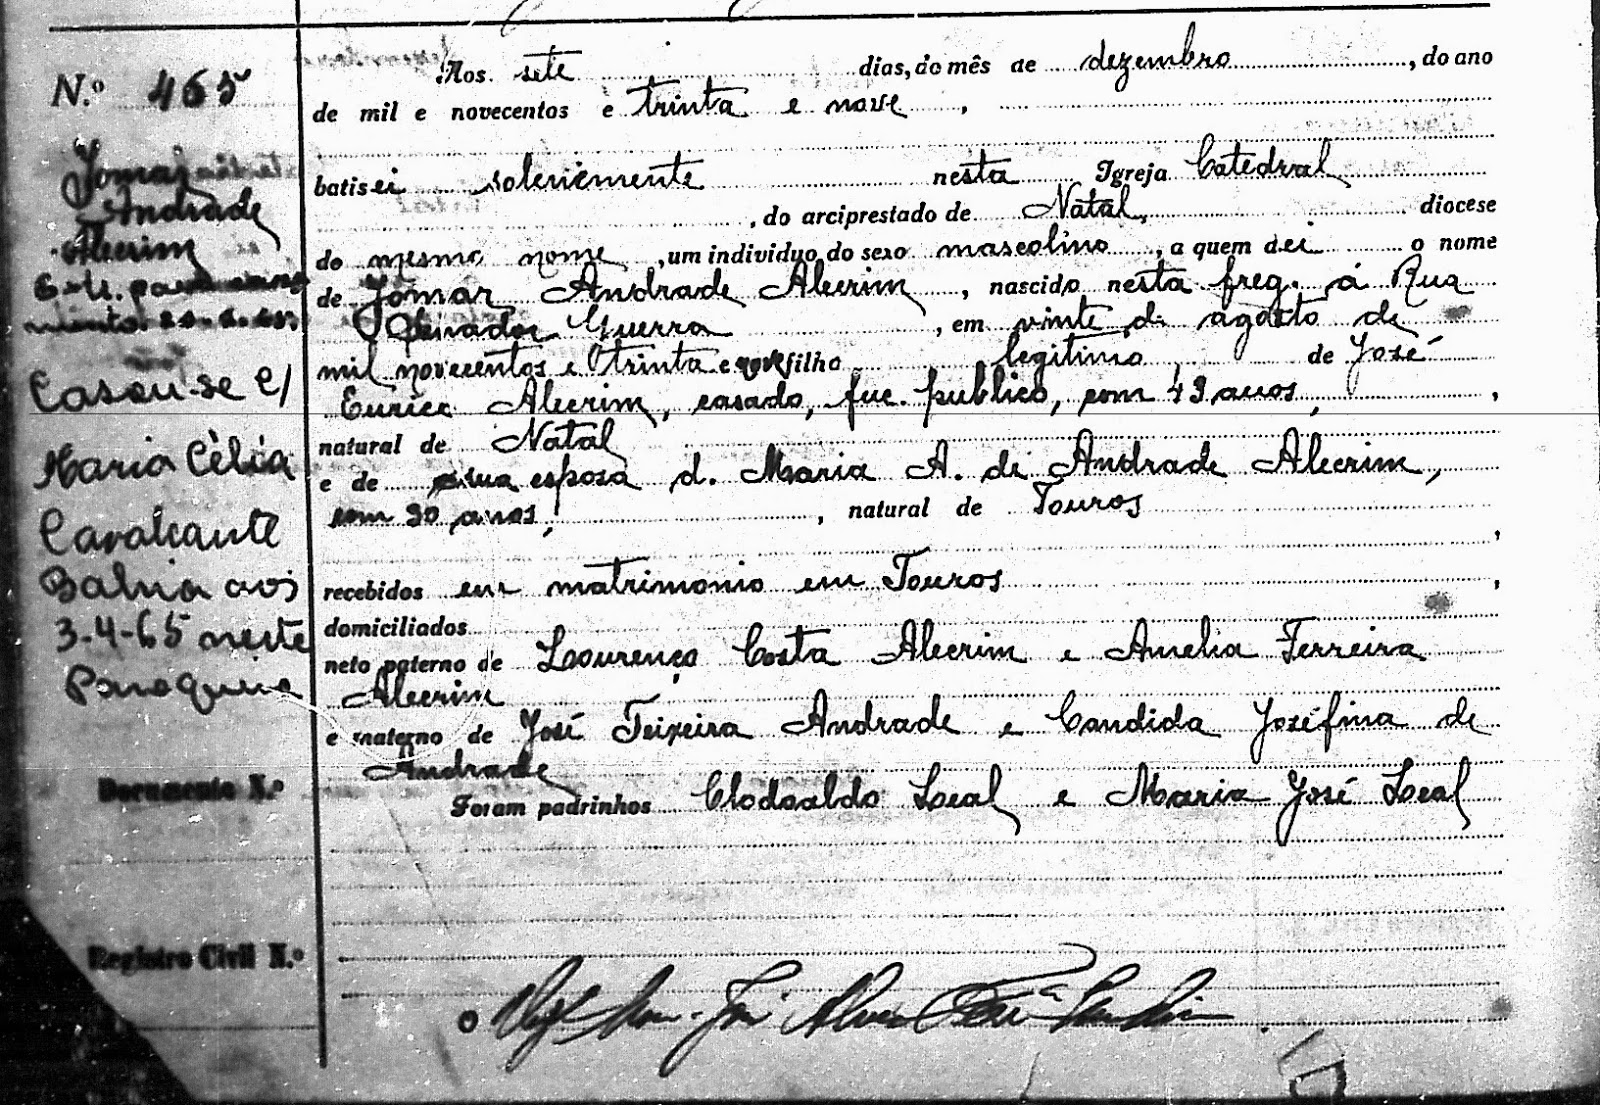 N.º 465
Jomar
Andrade
Alecrim
Casou-se c/
Maria Célia
Cavalcante
Bahia aos
3-4-65 neste
Paroquia
Documento N.º
Registro Civil N.º
Aos sete dias, do mês de dezembro, do ano
de mil e novecentos e trinta e nove,
batisei solenemente nesta Igreja Catedral
, do arciprestado de Natal, diocese
do mesmo nome, um individuo do sexo mascolino, a quem dei o nome
de Jomar Andrade Alecrim, nascido nesta freg. á Rua
Senador Guerra, em vinte de agosto de
mil novecentos e trinta e nove filho legitimo de José
Eurico Alecrim, casado, fuc. publico, com 43 anos,
natural de Natal
e de sua esposa d. Maria A. de Andrade Alecrim,
com 30 anos, natural de Touros
recebidos em matrimonio em Touros,
domiciliados
neto paterno de Lourenço Costa Alecrim e Amelia Ferreira
Alecrim
e materno de José Teixeira Andrade e Candida Joséfina de
Andrade
Foram padrinhos Clodoaldo Leal e Maria José Leal
O